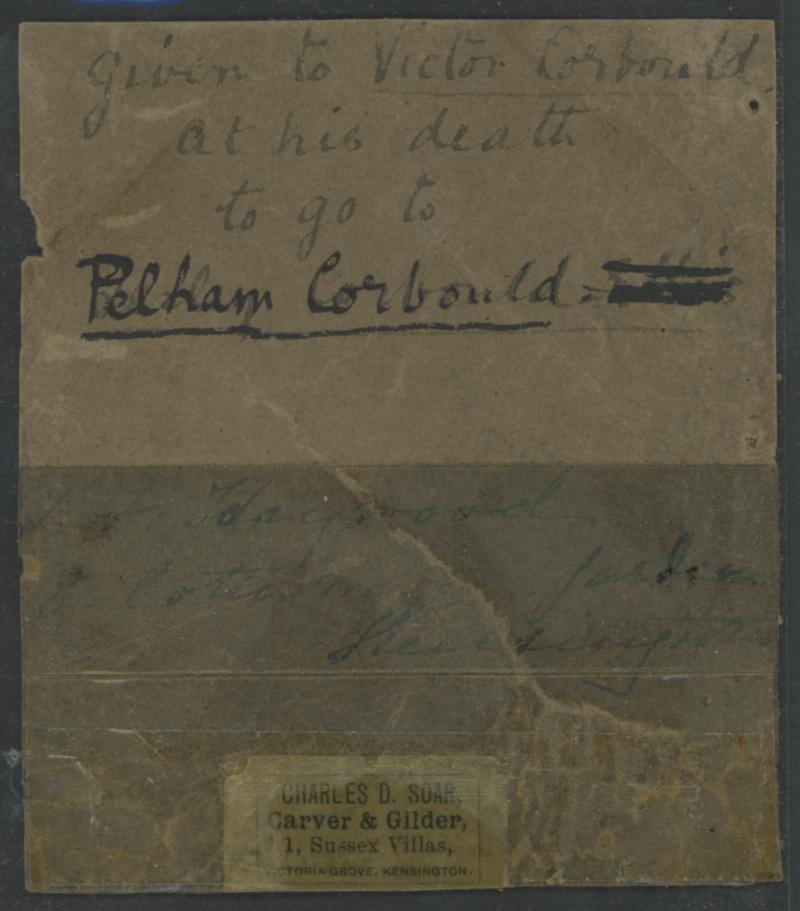 given to Victor Corbould.
at his death
to go to
Pelham Corbould
Haywood
8. Gardens
Kensington
CHARLES D. SOAR,
Carver & Gilder,
1, Sussex Villas,
VICTORIA GROVE, KENSINGTON.